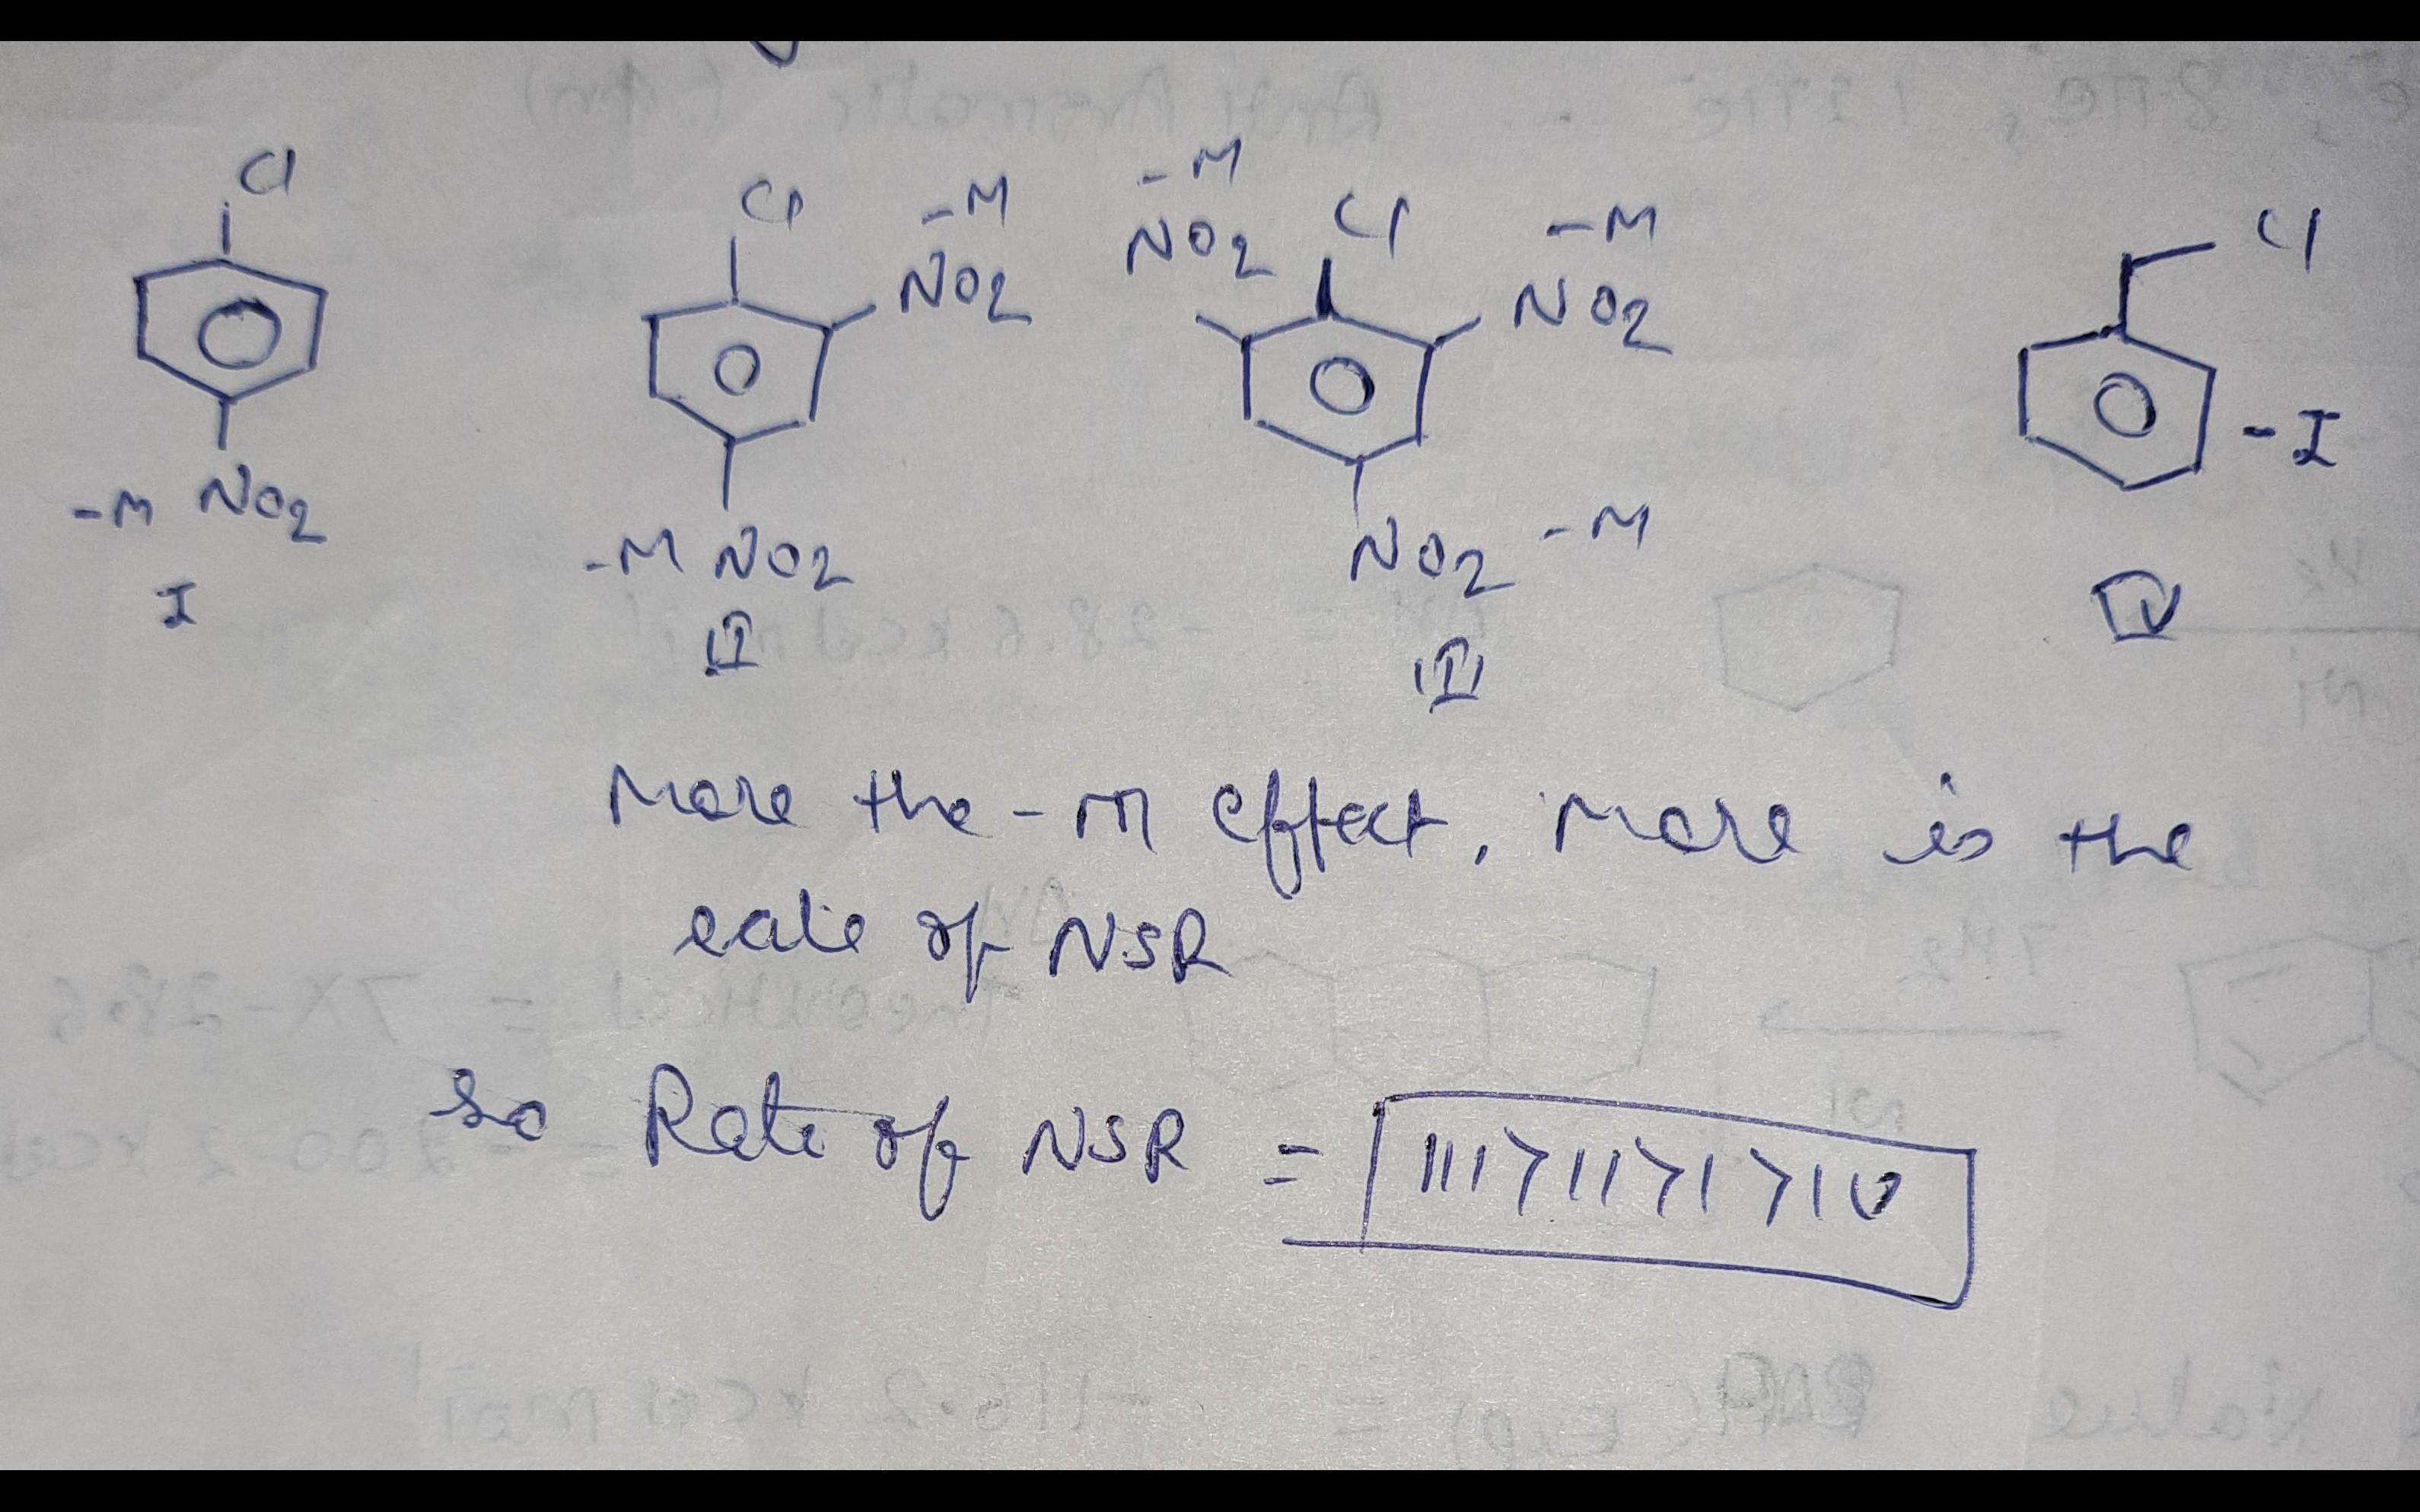 Cl
Cl
-M
NO2
-M
NO2
Cl
-M
NO2
Cl
-M NO2
-M NO2
NO2 -M
-I
I
II
III
IV
More the -m effect, more is the
rate of NSR
so Rate of NSR = III>II>I>IV